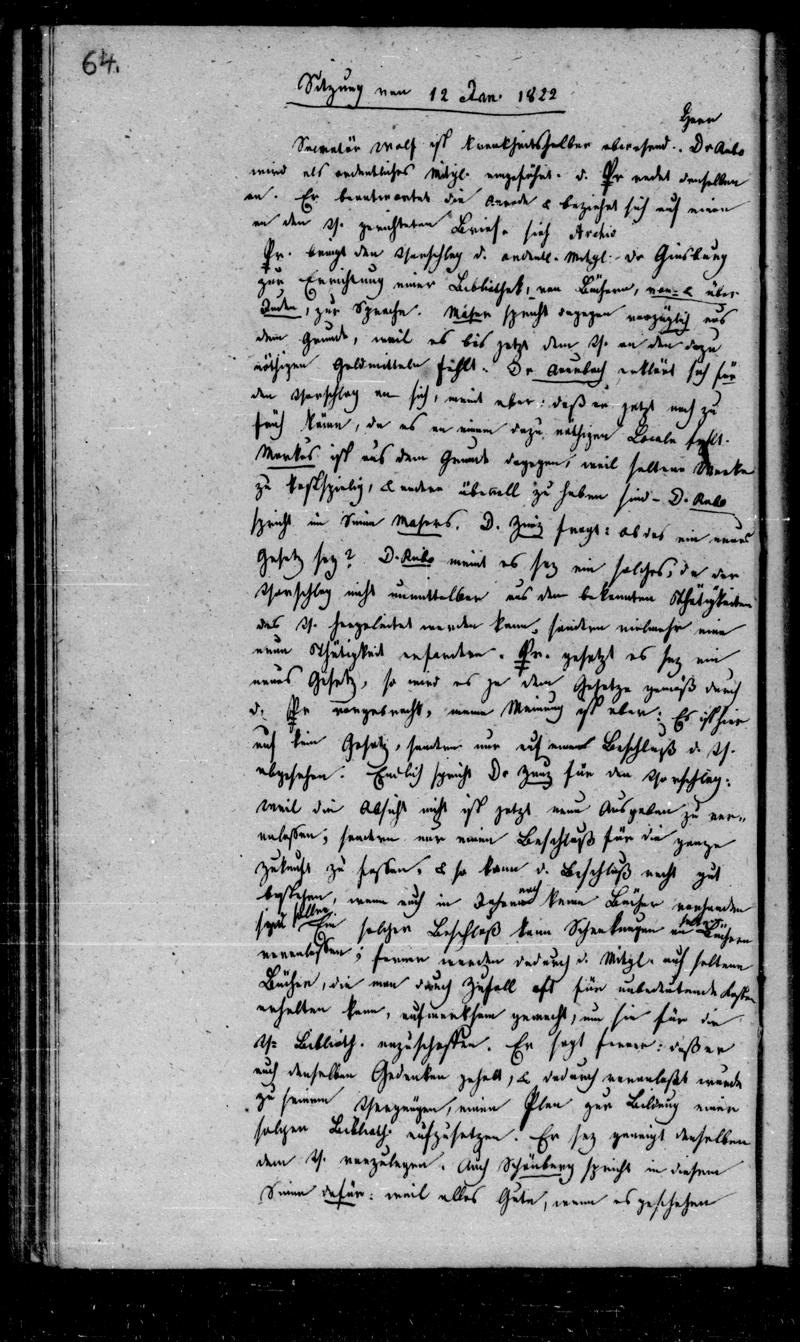 64.
Sitzung vom 12 Jan. 1822
Herr
Secretär Wolf ist krankheitshalber abwesend. Dr Rubo
wird als ordentliches Mitgl. eingeführt. d. Pr redet denselben
an. Er beantwortet die Anrede & bezieht sich auf einen
an den V. gerichteten Brief. sieh Archiv
Pr. bringt den Vorschlag d. ordentl. Mitgl. Dr Ginsburg
zur Errichtung einer Bibliothek, von Büchern, von- & über
Juden, zur Sprache. Moser spricht dagegen vorzüglich aus
dem Grunde, weil es bis jetzt dem V. an den dazu
nöthigen Geldmitteln fehlt. Dr Auerbach erklärt sich für
den Vorschlag an sich, meint aber: daß er jetzt noch zu
früh käme, da es an einem dazu nöthigen Locale fehlt.
Markus ist aus dem Grunde dagegen, weil seltene Werke
zu kostspielig, & andere überall zu haben sind. D. Rubo
spricht im Sinne Mosers. D. Zunz fragt: ob das ein neues
Gesetz sey? D. Rubo meint es sey ein solches, da der
Vorschlag nicht unmittelbar aus den bekannten Thätigkeiten
des V. hergeleitet werden kann, sondern vielmehr eine
neue Thätigkeit erfordere. Pr. gesetzt es sey ein
neues Gesetz, so wird es ja dem Gesetze gemäß durch
d. Pr vorgebracht, meine Meinung ist aber: Es ist hier
auf kein Gesetz, sondern nur auf einen Beschluß d. V.
abgesehen. Endlich spricht Dr Zunz für den Vorschlag:
weil die Absicht nicht ist jetzt neue Ausgaben zu ver-
anlassen, sondern nur einen Beschluß für die ganze
Zukunft zu fassen, & so kann d. Beschluß recht gut
bestehen, wenn auch in noch keine Bücher vorhanden
seyn sollten. Ein solcher Beschluß kann Schenkungen an Büchern
veranlassen; ferner werden dadurch d. Mitgl. auf seltene
Bücher, die man durch Zufall oft für unbedeutende Kosten
erhalten kann, aufmerksam gemacht, um sie für die
V. Biblioth. anzuschaffen. Er sagt ferner: daß er
auch denselben Gedanken gehabt, & dadurch veranlaßt wurde
zu seinem Vergnügen, einen Plan zur Bildung einer
solchen Biblioth. aufzusetzen. Er sey geneigt denselben
dem V. vorzulegen. Auch Schönberg spricht in diesem
Sinne dafür: weil alles Gute, wenn es geschehen